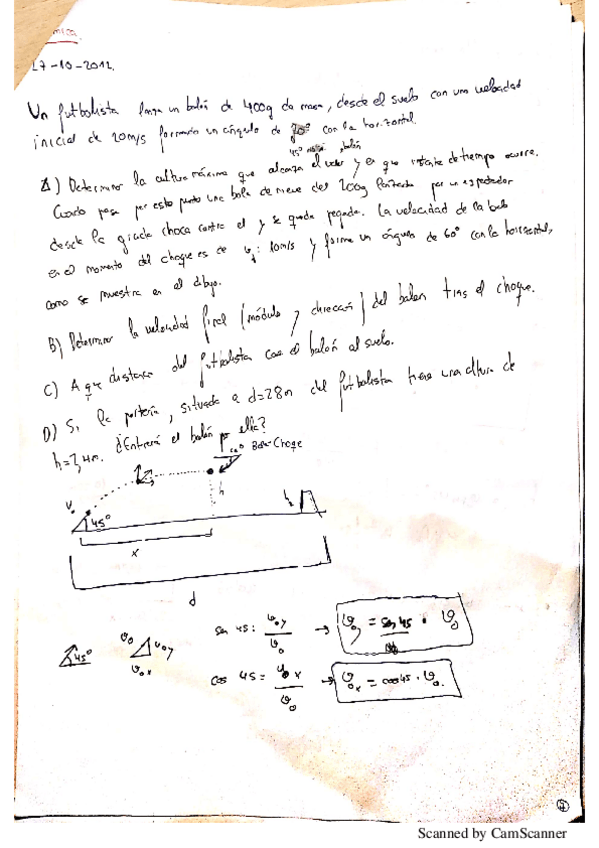 17-10-2012.
Un futbolista lanza un balón de 400g de masa, desde el suelo con una velocidad
inicial de 20m/s formando un ángulo de 70° con la horizontal.
45°
balón
A) Determinar la altura máxima que alcanza el balón y en que instante de tiempo ocurre.
Cuando pasa por este punto una bola de nieve del 200g lanzada por un espectador
desde la grada choca contra el y se queda pegada. La velocidad de la bola
en el momento del choque es de : 10m/s y forma un ángulo de 60° con la horizontal,
como se muestra en el dibujo.
B) Determinar la velocidad final (módulo y dirección) del balón tras el choque.
C) A que distancia del futbolista cae el balón al suelo.
D) Si la portería, situada a d=28m del futbolista tiene una altura de
h= ¿Entrará el balón por ella?
60° Choque
v₀ 45° h h₂
x
d
45° v₀ v₀y
v₀x
sen 45: v₀y / v₀ → v₀y = sen 45 · v₀
cos 45 = v₀x / v₀ → v₀x = cos 45 · v₀.
Scanned by CamScanner